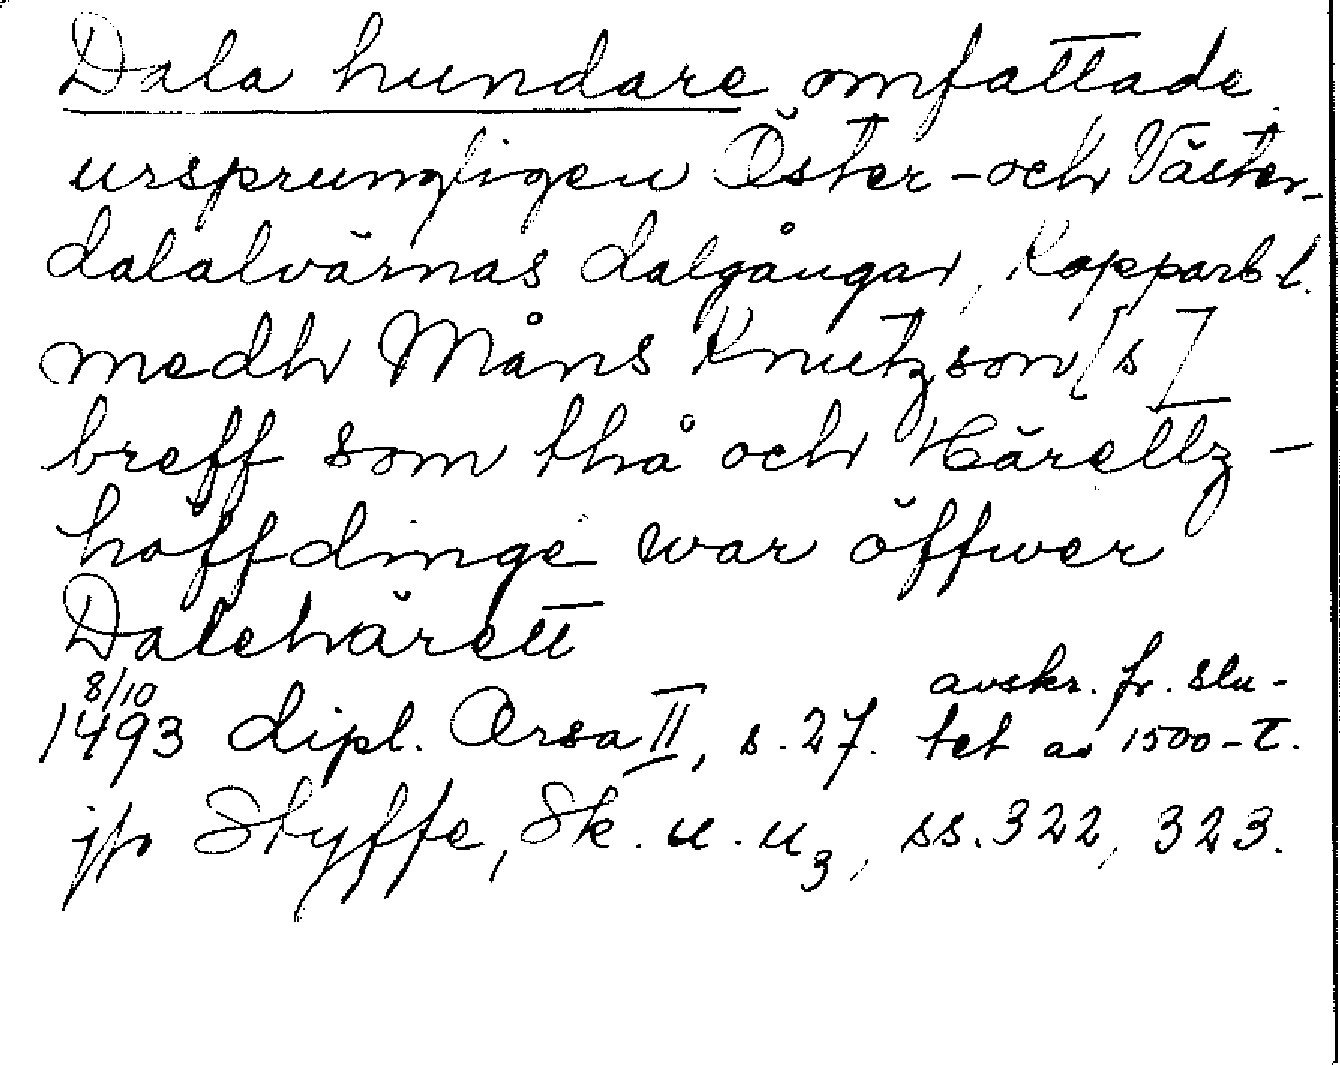 Dala hundare omfattade
ursprungligen Öster- och Väster-
dalälvarnas dalgångar, Kopparb l.
medh Måns Knutzson[s]
breff som thå och Härettz-
hoffdinge war öffwer
Dalehärett
8/10
1493 dipl. Orsa II, s. 27. avskr. fr. slu-
tet av 1500-t.
jfr Styffe, Sk. u. u3, ss. 322, 323.